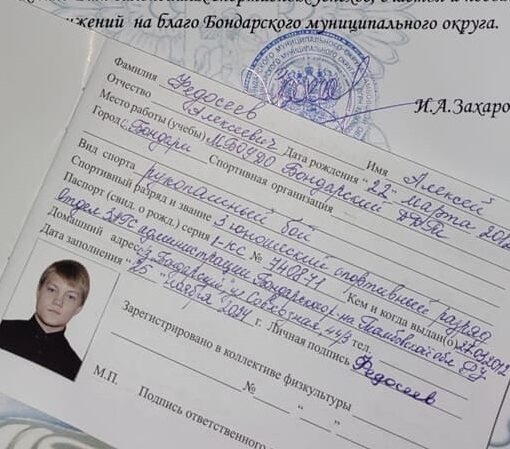 жений на благо Бондарского муниципального округа.
И.А.Захаро
Фамилия Федосеев Имя Алексей
Отчество Алексеевич Дата рождения "22" марта 2012
Место работы (учебы) МБОУДО Бондарский
Город с. Бондари Спортивная организация
Вид спорта рукопашный бой
Спортивный разряд и звание 3 юношеский спортивный разряд
Паспорт (свид. о рожд.) серия I-КС № 740871 Кем и когда выдан(о) 27.03.2012
отдел ЗАГС администрации Бондарского р-на Тамбовской обл.
Домашний адрес с. Бондари ул Советская 44/3 тел.
Дата заполнения "25" ноября г. Личная подпись Федосеев
Зарегистрировано в коллективе физкультуры
№ " "
М.П. Подпись ответственного